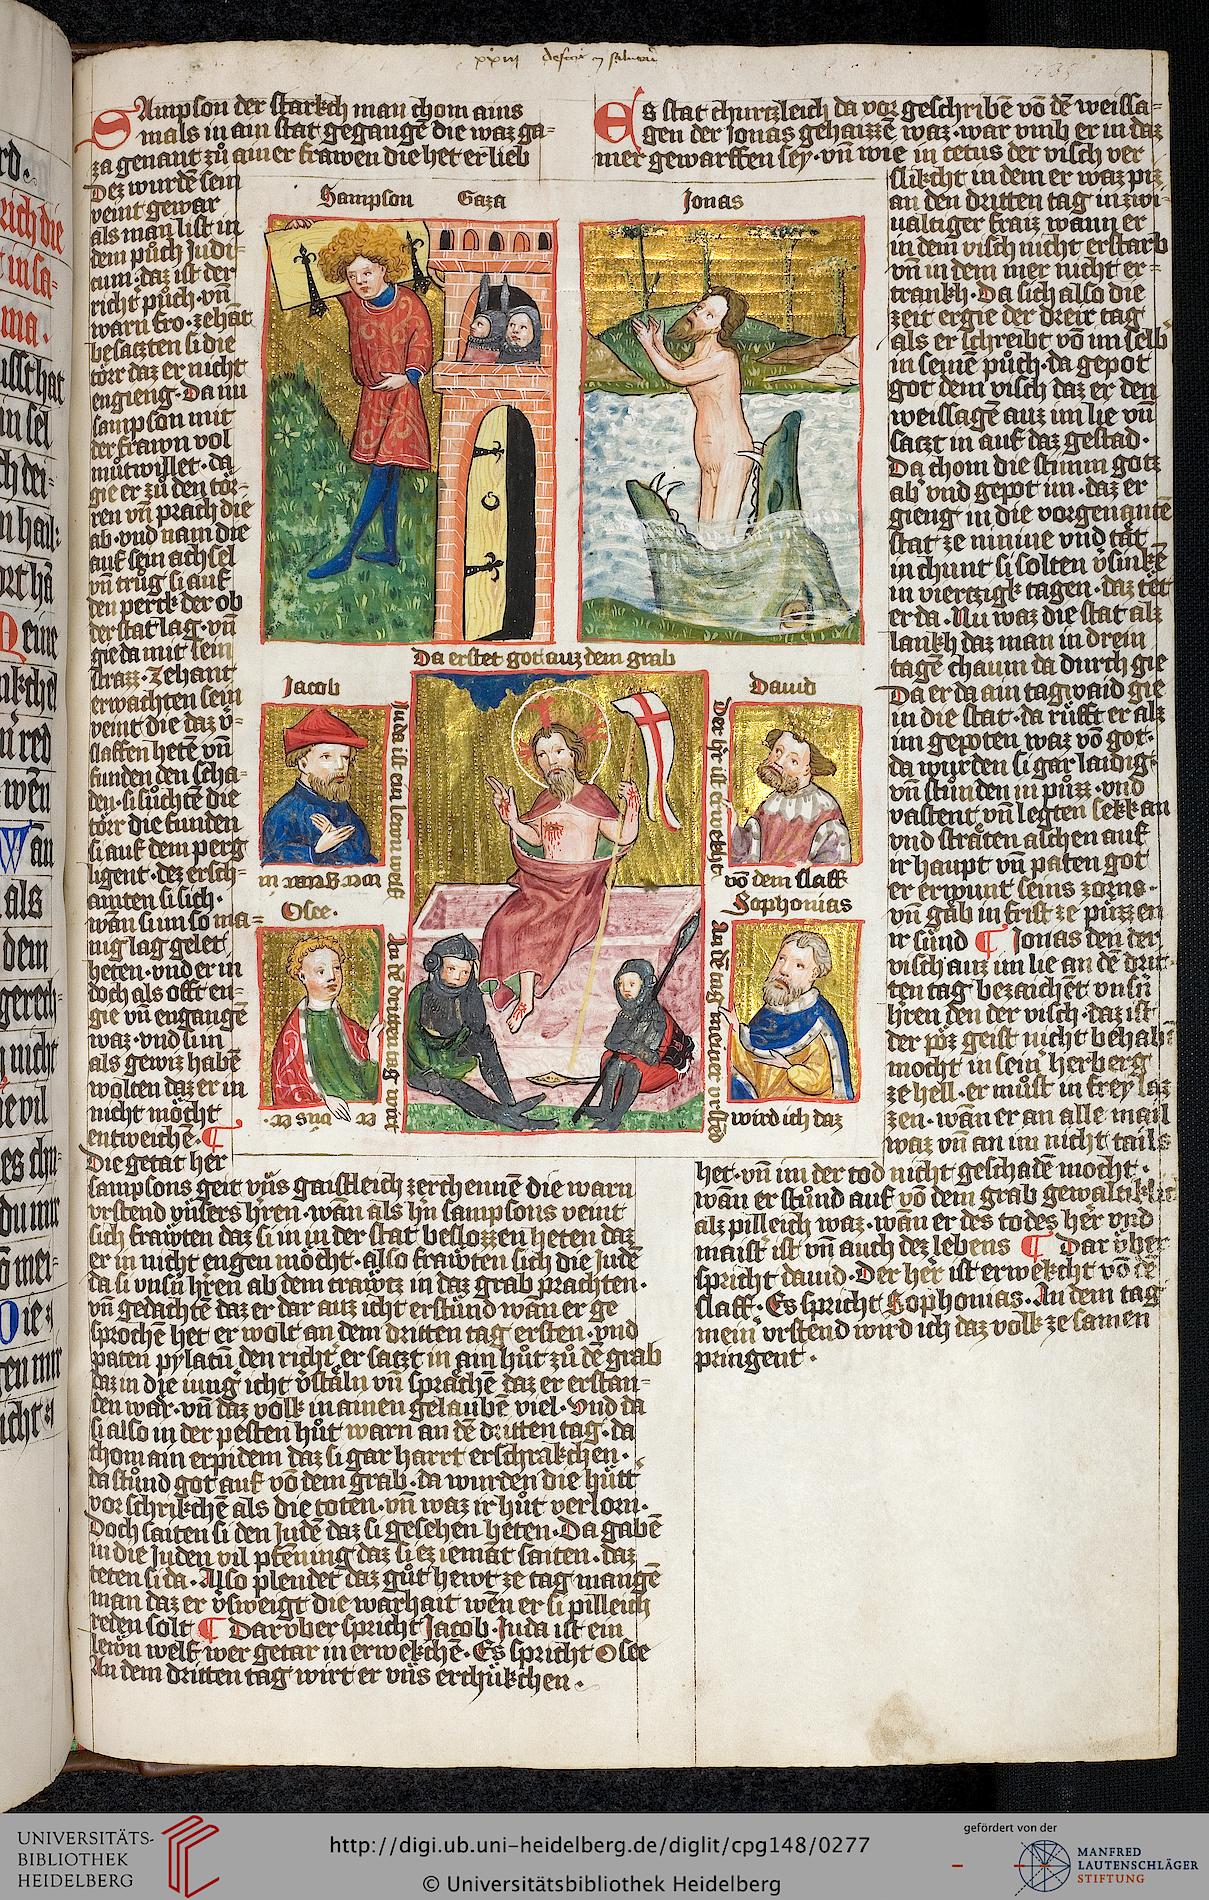 Sampson der starkch man chom ains
mals in ain stat gegangē die waz ga=
za genant zů ainer frawen die het er lieb
Dez wurdē sein
veint gewar
als man list in
dem půch Judi=
cum · daz ist der
richt půch · vn̄
warn fro · zehāt
besaczten si die
törr daz er nicht
engieng · Da nu
sampson mit
der frawn vol
můtwillet · da
gie er zů den tör=
ren vn̄ prach die
ab · vnd nam die
auf sein achsel
vn̄ trůg si auf
den perck der ob
der stat lag · vn̄
gie da mit sein
strazz · Zehant
erwachten sein
veint die daz v̄=
slaffen hetē vn̄
funden den scha=
den · si sůchtē die
törr die funden
si auf dem perg
ligent · dez ersch=
amten si sich ·
wan si im so ma=
nig lag gelet
heten · vnd er in
doch als offt en=
gie vn̄ engangē
waz · vnd si in
als gewiz habē
wolten daz er in
nicht möcht
entweichē · ¶
Die getat her
sampsons geit vn̄s gaistleich zerchennē die warn
vrstend vnsers hr̄en · wan als hn̄ sampsons veint
sich frawten daz si in in der stat beslozzen heten daz
er in nicht engen möcht · also frawten sich die Judē
da si vnsn̄ hr̄en ab dem crawtz in daz grab prachten ·
vn̄ gedachtē daz er dar auz icht erstünd wan er ge
sprochē het er wolt an dem dritten tag ersten · vnd
paten pylatū den richt̄er saczt in ain hůt zů dē grab
daz in die iung icht v̄staln vn̄ sprachē daz er erstan=
den wār · vn̄ daz volk in ainen gelaubē viel · Vnd da
si also in der pesten hůt warn an dē dritten tag · da
chom ain erpidem daz si gar harrt erschrakchen ·
da stůnd got auf vō dem grab · da wurden die hütt̄
vor schrikchē als die toten · vn̄ waz ir hůt verlorn ·
Doch saiten si den Judē daz si gesehen heten · Da gabē
in die Juden vil pfening daz si ez iemāt saiten · daz
teten si da · Also plendet daz gůt hewt ze tag mangē
man daz er v̄sweigt die warhait wēn er si pilleich
reden solt ¶ Dar vber spricht Jacob · Juda ist ein
lewn welf wer getar in erwekchē · Es spricht Osee
An dem dritten tag wirt er vn̄s erchükchen ·
Es stat churczleich da vor geschribē vō dē weissa=
gen der Jonas gehaizzē waz · war vmb er in daz
mer gewarffen sey · vn̄ wie in cetus der visch ver
slikcht in dem er waz piz
an den dritten tag in zwi=
ualtiger fraiz wann er
in dem visch nicht erstarb
vn̄ in dem mer nicht er=
trankh · Da sich also die
zeit ergie der dreir tag
als er schreibt vō im selb
in seinē půch · da gepot
got dem visch daz er den
weissagē auz im lie vn̄
saczt in auf daz gestad ·
Da chom die stimm gotz
ab vnd gepot im · daz er
gieng in die vorgenantē
stat ze niniue vnd tät
in chunt si solten v̄sinkē
in vierczigk tagen · daz tet
er da · Nu waz die stat alz
lankh daz man in drein
tagē chaum da durch gie
Da er da ain tagwaid gie
in die stat · da růfft er alz
im gepoten waz vō got ·
da wurden si gar laidig ·
vn̄ stunden in půzz · vnd
vastent vn̄ legten sekk an
vnd sträten aschen auf
ir haupt vn̄ paten got
er erwunt seins zorns ·
vn̄ gäb in frist ze püzzen
ir sünd ¶ Jonas den der
visch auz im lie an dē drit
ten tag bezaichēt vnsn̄
hren den der visch · daz ist
der pöz geist nicht behabn̄
mocht in sein̄ herberg
ze hell · er můst in frey laz
zen · wan er an alle mail
waz vn̄ an im nicht tails
het · vn̄ im der tod nicht geschadē mocht ·
wan er stůnd auf vō dem grab gewaltikleich
alz pilleich waz · wan er des todes her̄ vnd
maist̄ ist vn̄ auch dez lebens ¶ Dar vber
spricht dauid · Der her̄ ist erwekcht vō dē
slaff · Es spricht Sophonias · An dem tag
mein̄ vrstend wird ich daz volk ze samen
pringent ·
Sampson Gaza
Jonas
Da erstet got auz dem grab
Jacob
Juda ist ein lewen welff
Dauid
Der hr̄ ist erwekcht
vō dem slaff
Osee ·
An dē dritten tag wirt
er vns er
Sophonias
An dē tag meiner vrstēd
wird ich daz
UNIVERSITÄTS-
BIBLIOTHEK
HEIDELBERG
http://digi.ub.uni-heidelberg.de/diglit/cpg148/0277
© Universitätsbibliothek Heidelberg
gefördert von der
MANFRED
LAUTENSCHLÄGER
STIFTUNG